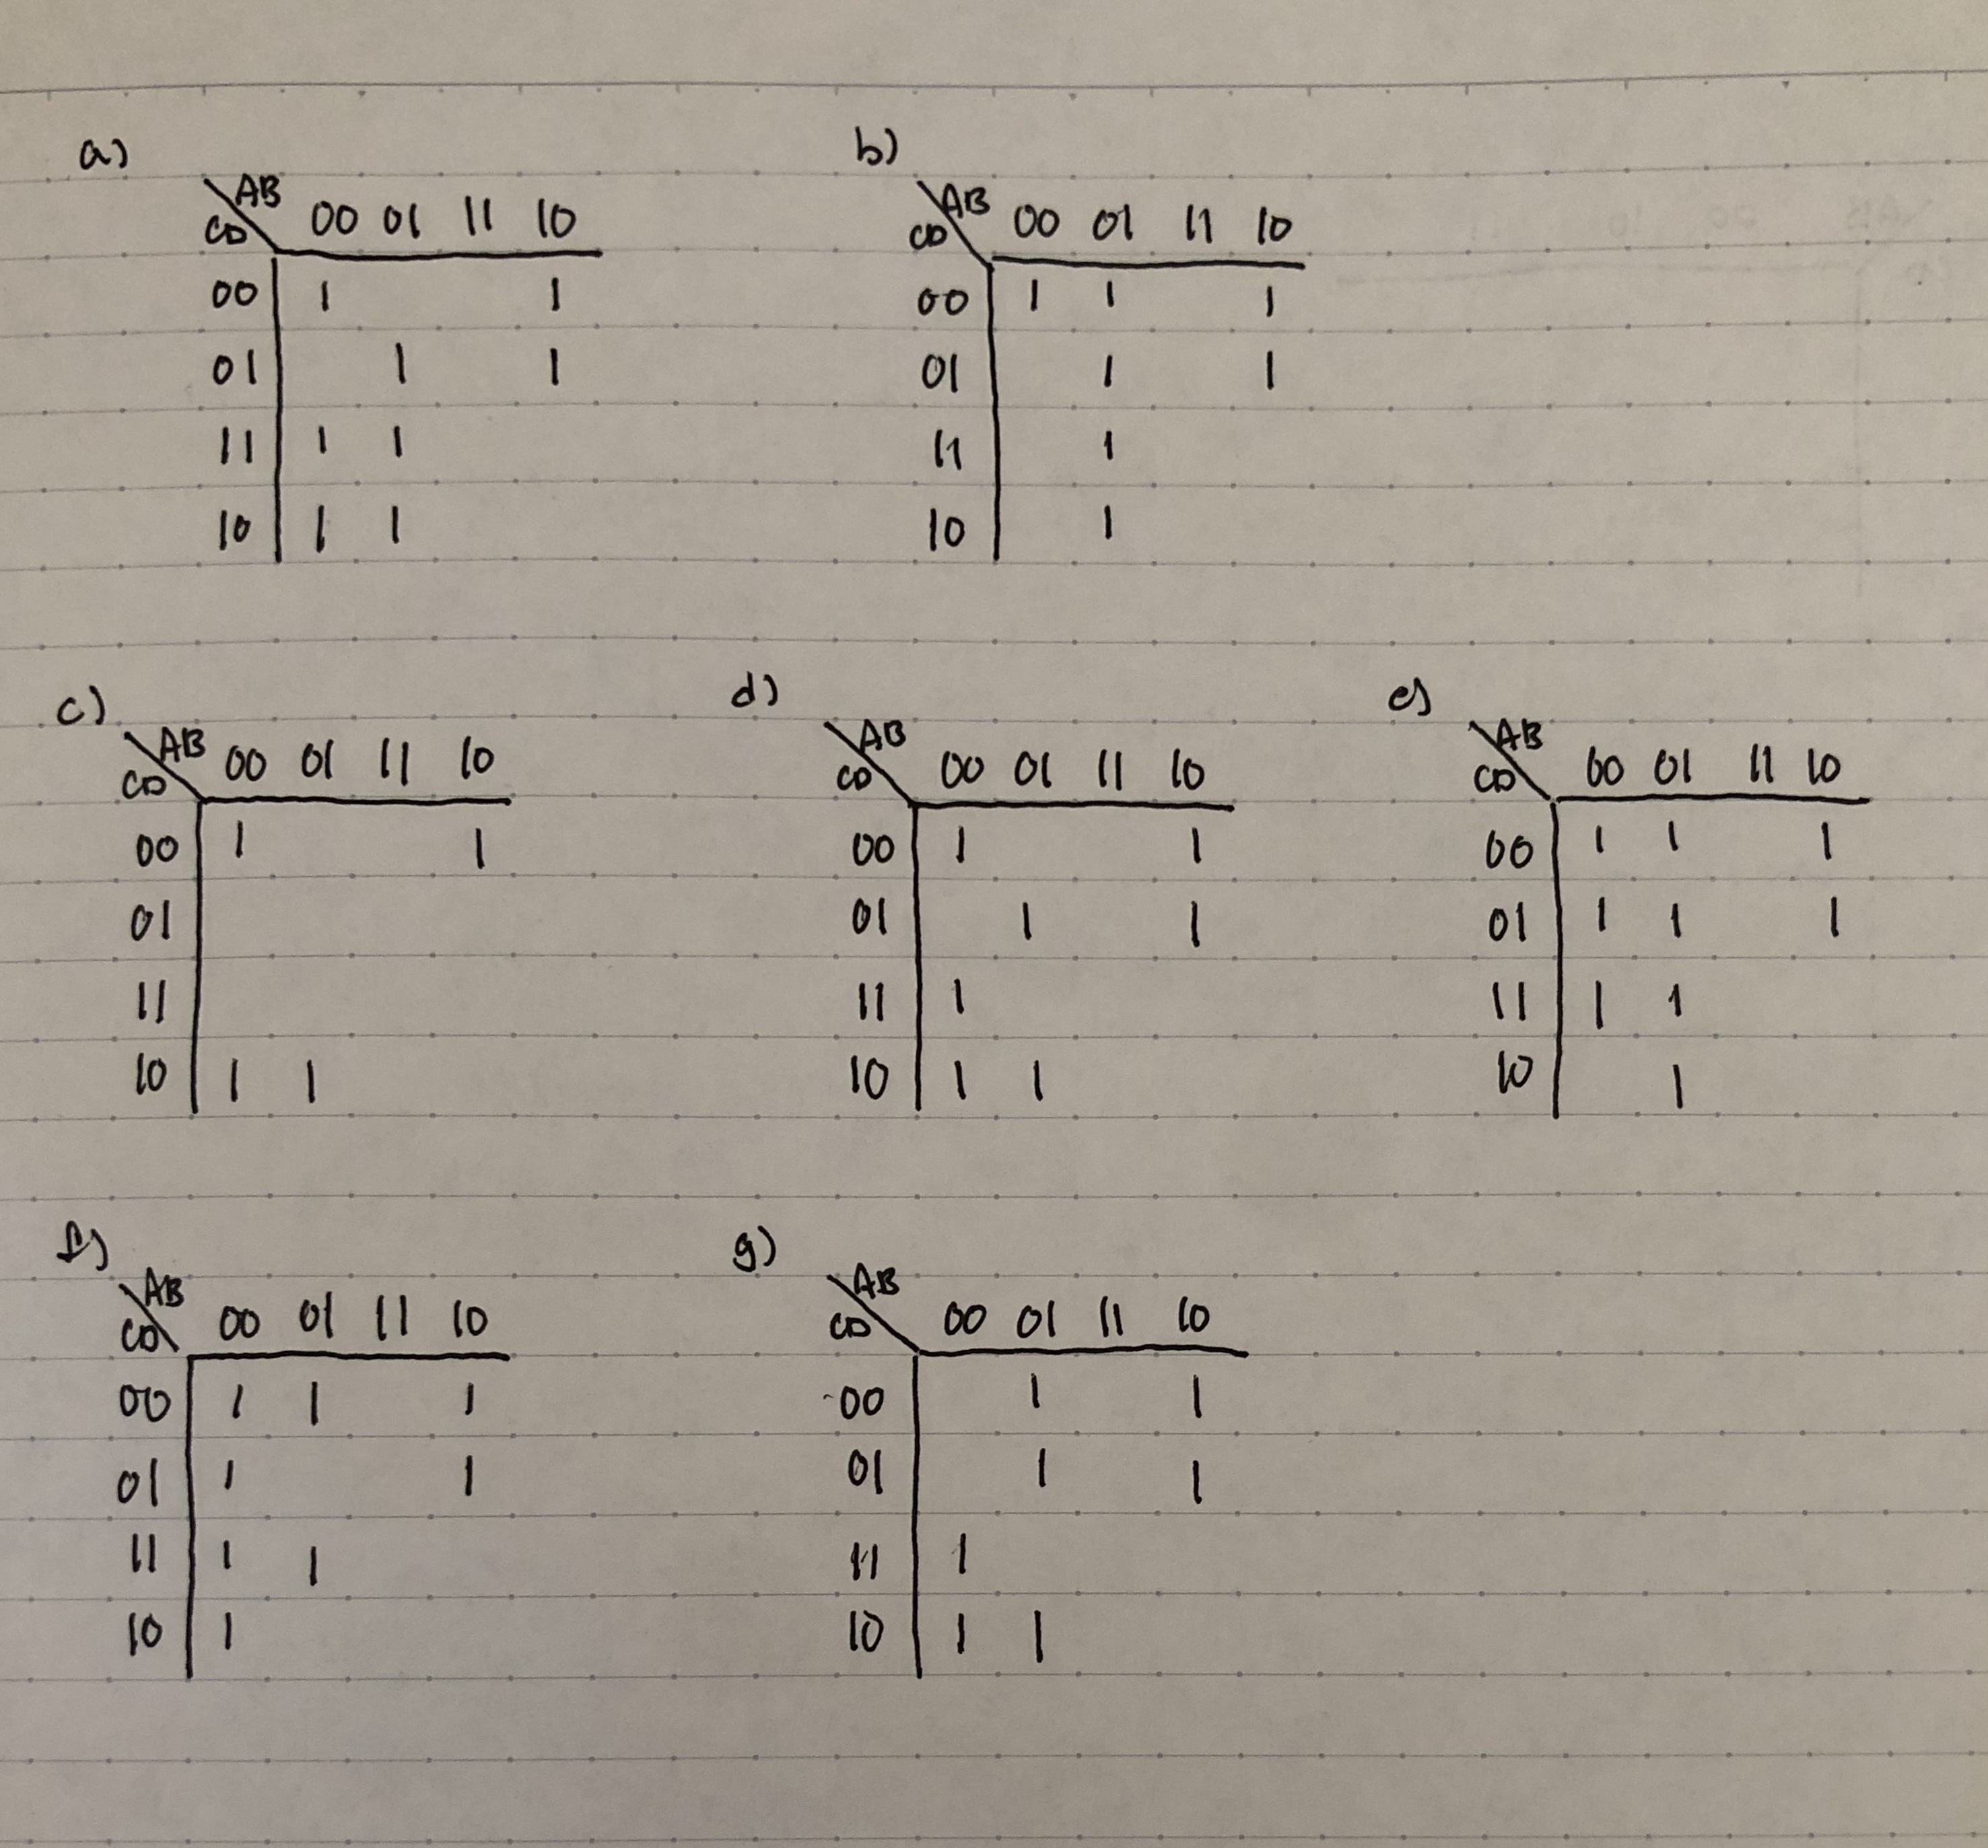 a)
AB
CD 00 01 11 10
00 1 1
01 1 1
11 1 1
10 1 1
b)
AB
CD 00 01 11 10
00 1 1 1
01 1 1
11 1
10 1
c)
AB
CD 00 01 11 10
00 1 1
01
11
10 1 1
d)
AB
CD 00 01 11 10
00 1 1
01 1 1
11 1
10 1 1
e)
AB
CD 00 01 11 10
00 1 1 1
01 1 1 1
11 1 1
10 1
f)
AB
CD 00 01 11 10
00 1 1 1
01 1 1
11 1 1
10 1
g)
AB
CD 00 01 11 10
00 1 1
01 1 1
11 1
10 1 1